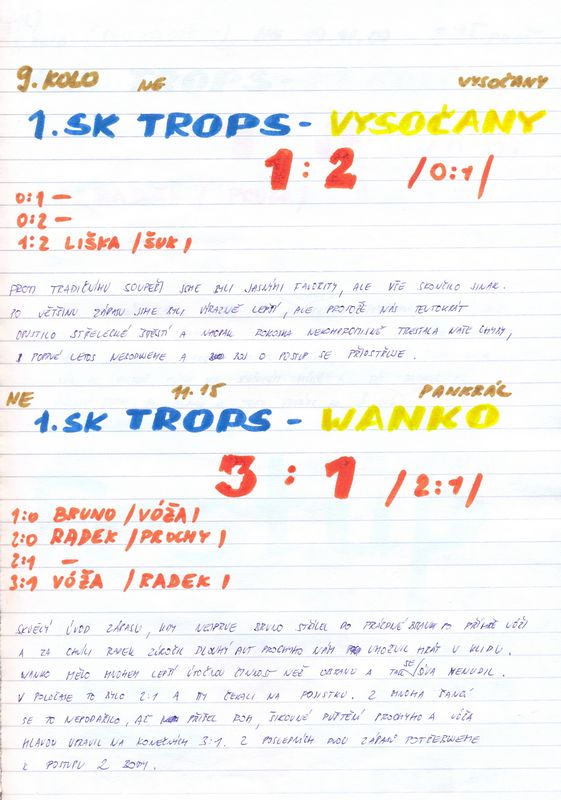 9. KOLO NE VYSOČANY
1. SK TROPS - VYSOČANY
1:2 /0:1/
0:1 —
0:2 —
1:2 LIŠKA /ŠUK/
PROTI TRADIČNÍMU SOUPEŘI JSME BYLI JASNÝMI FAVORITY, ALE VŠE SKONČILO JINAK.
PO VĚTŠINU ZÁPASU JSME BYLI VÝRAZNĚ LEPŠÍ, ALE PROTOŽE NÁS TENTOKRÁT
OPUSTILO STŘELECKÉ ŠTĚSTÍ A NAOPAK ROKOSKA NEKOMPROMISNĚ TRESTALA NAŠE CHYBY,
POPRVÉ LETOS NEBODUJEME A BOJ O POSTUP SE PŘIOSTŘUJE.
NE 11.15 PANKRÁC
1. SK TROPS - WANKO
3:1 /2:1/
1:0 BRUNO /VÓŽA/
2:0 RADEK /PROCHY/
2:1 —
3:1 VÓŽA /RADEK/
SKVĚLÝ ÚVOD ZÁPASU, KDY NEJPRVE BRUNO STŘÍLEL DO PRÁZDNÉ BRANKY PO PŘIHRÁVCE VÓŽI
A ZA CHVÍLI RADEK ZÚROČIL DLOUHÝ AUT PROCHYHO NÁM UMOŽNIL HRÁT V KLIDU.
WANKO MĚLO MNOHEM LEPŠÍ ÚTOČNOU ČINNOST NEŽ OBRANU A TAK SE DIVÁK NENUDIL.
V POLOČASE TO BYLO 2:1 A MY ČEKALI NA POJISTKU. Z MNOHA ŠANCÍ
SE TO NEPODAŘILO, AŽ PŘIŠEL ROH, ŠIKOVNÉ PUŠTĚNÍ PROCHYHO A VÓŽA
HLAVOU UPRAVIL NA KONEČNÝCH 3:1. Z POSLEDNÍCH DVOU ZÁPASŮ POTŘEBUJEME
K POSTUPU 2 BODY.